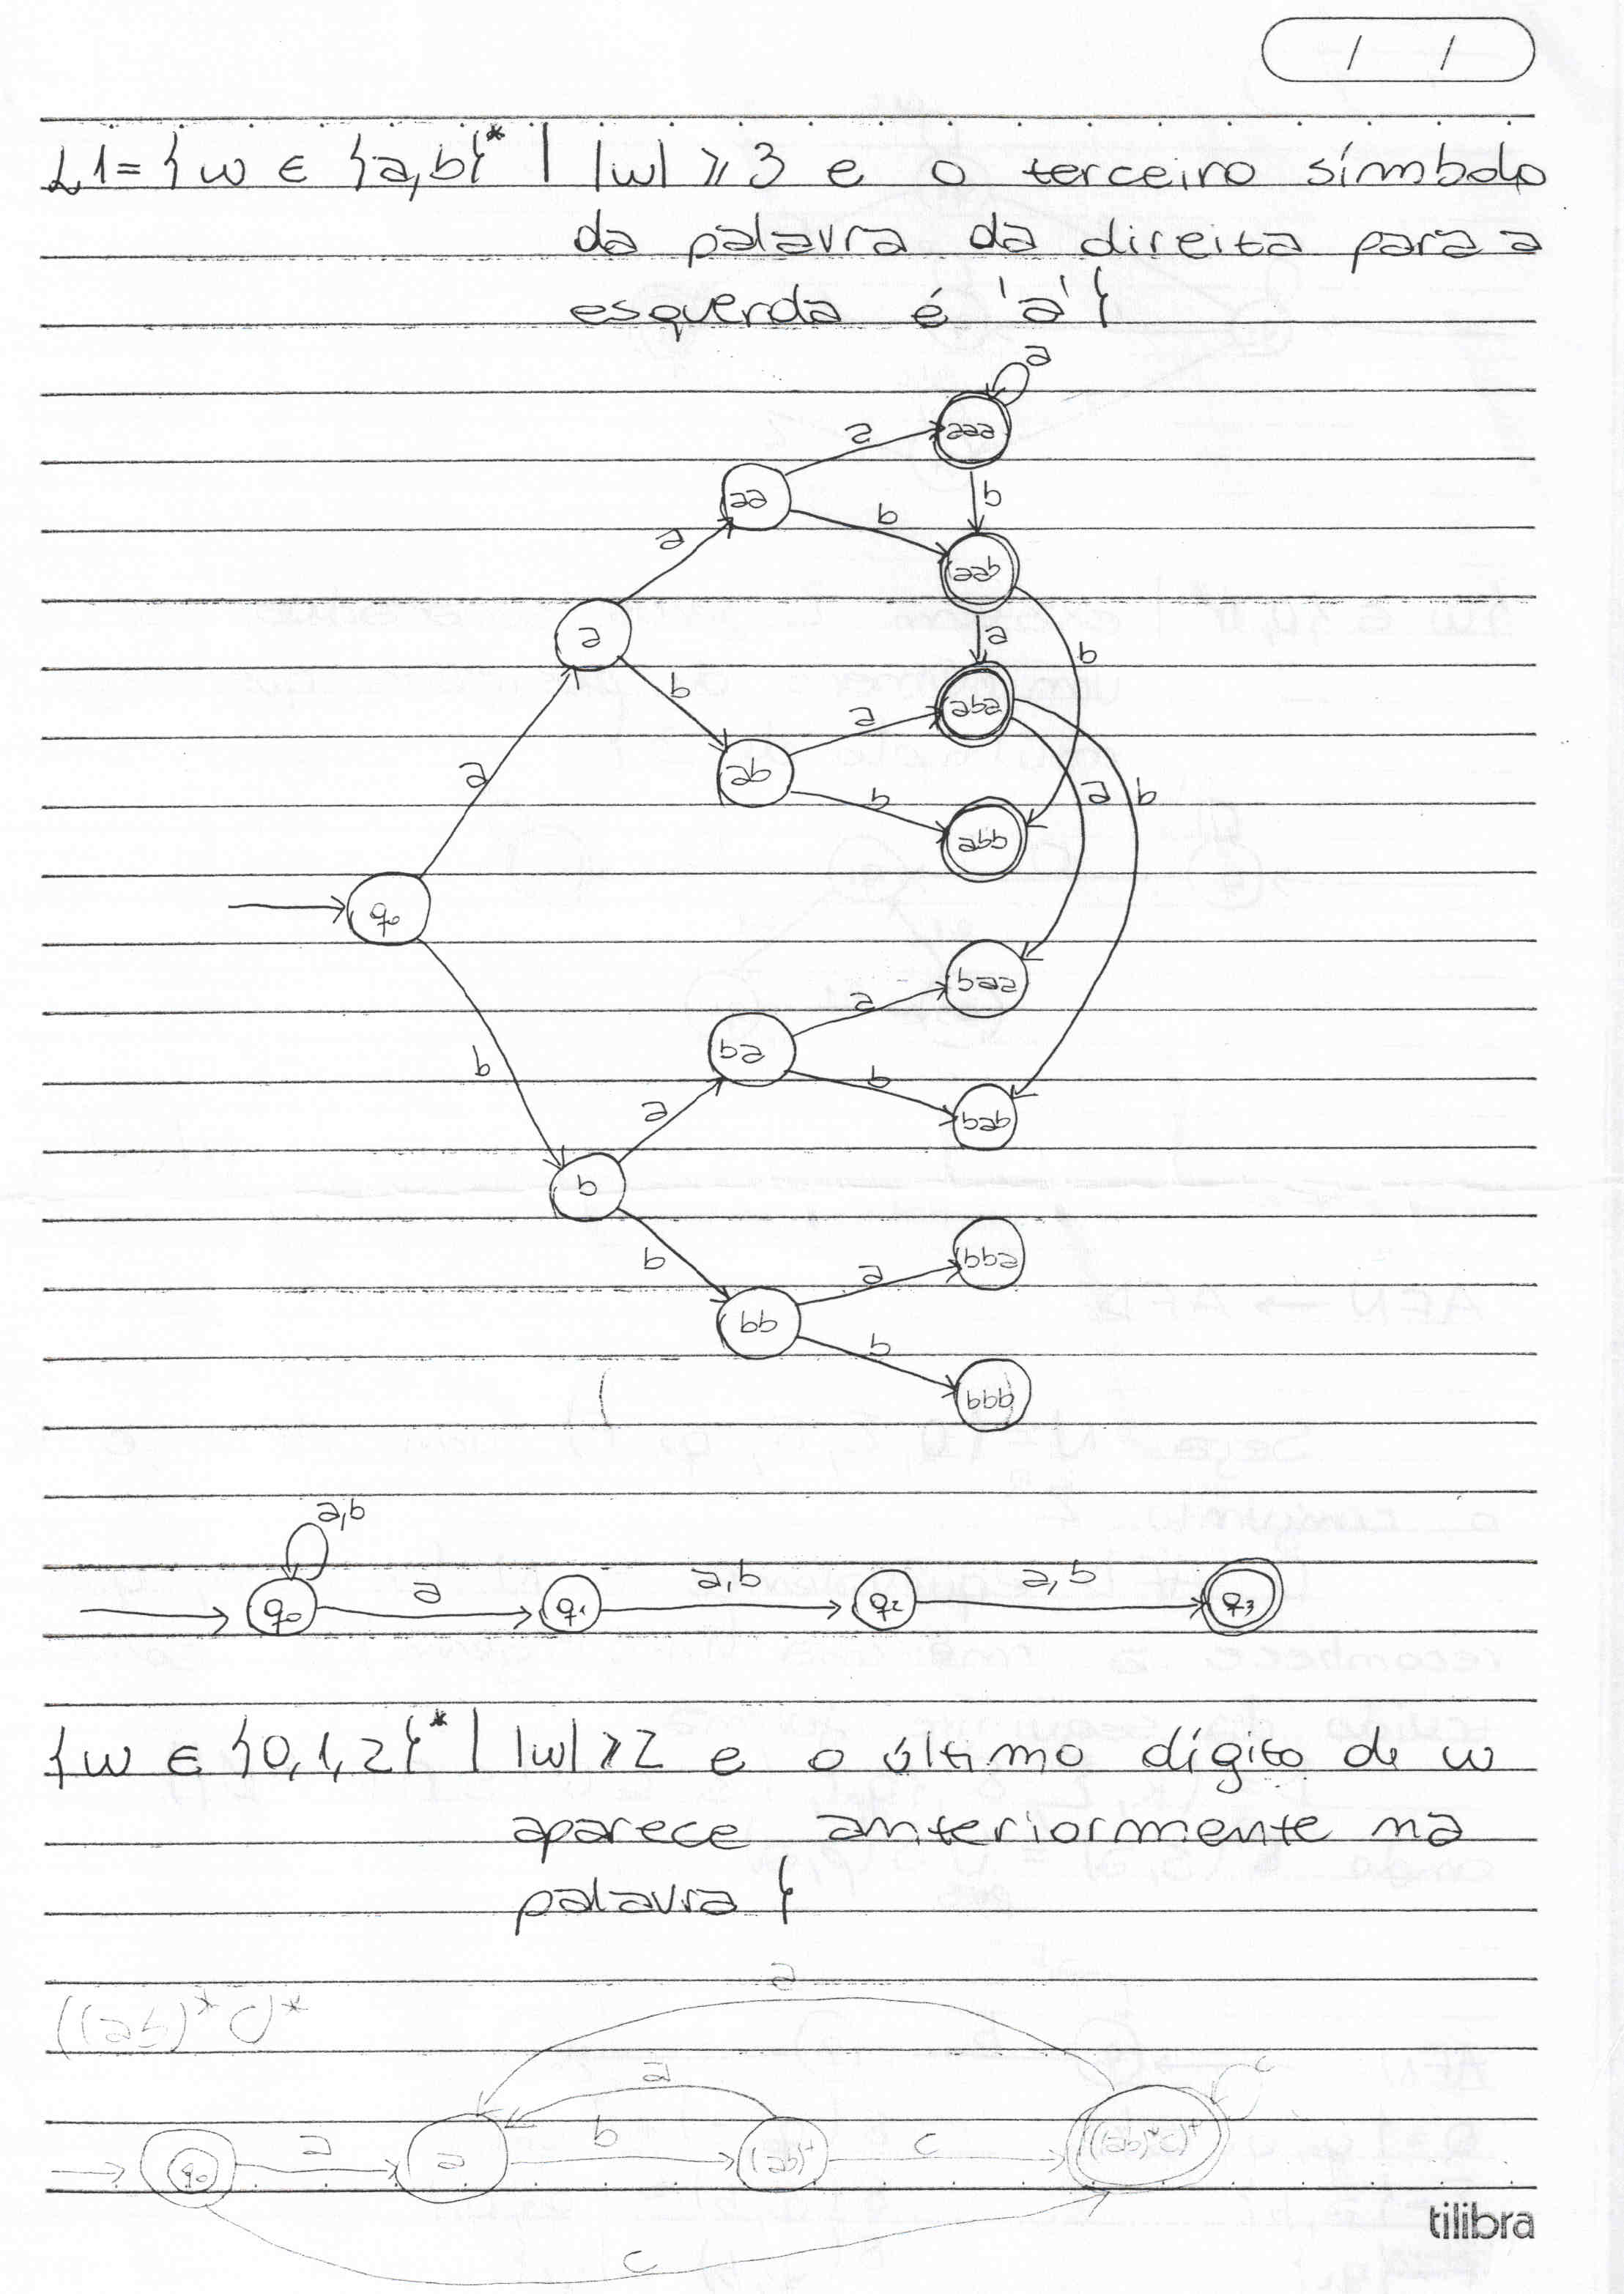 / /
L1 = { w ∈ {a,b}* | |w| ≥ 3 e o terceiro símbolo
da palavra da direita para a
esquerda é 'a' }
a
a aaa
aa b
a b aab
a a b
b a aba
a ab a b
b abb
q0
a baa
b ba
a b bab
b
b a bba
bb b
bbb
a,b
q0 a q1 a,b q2 a,b q3
{ w ∈ {0,1,2}* | |w| ≥ 2 e o último dígito de w
aparece anteriormente na
palavra }
a
((ab)*c)*
a c
q0 a a b (ab)+ c ((ab)*c)+
c
tilibra